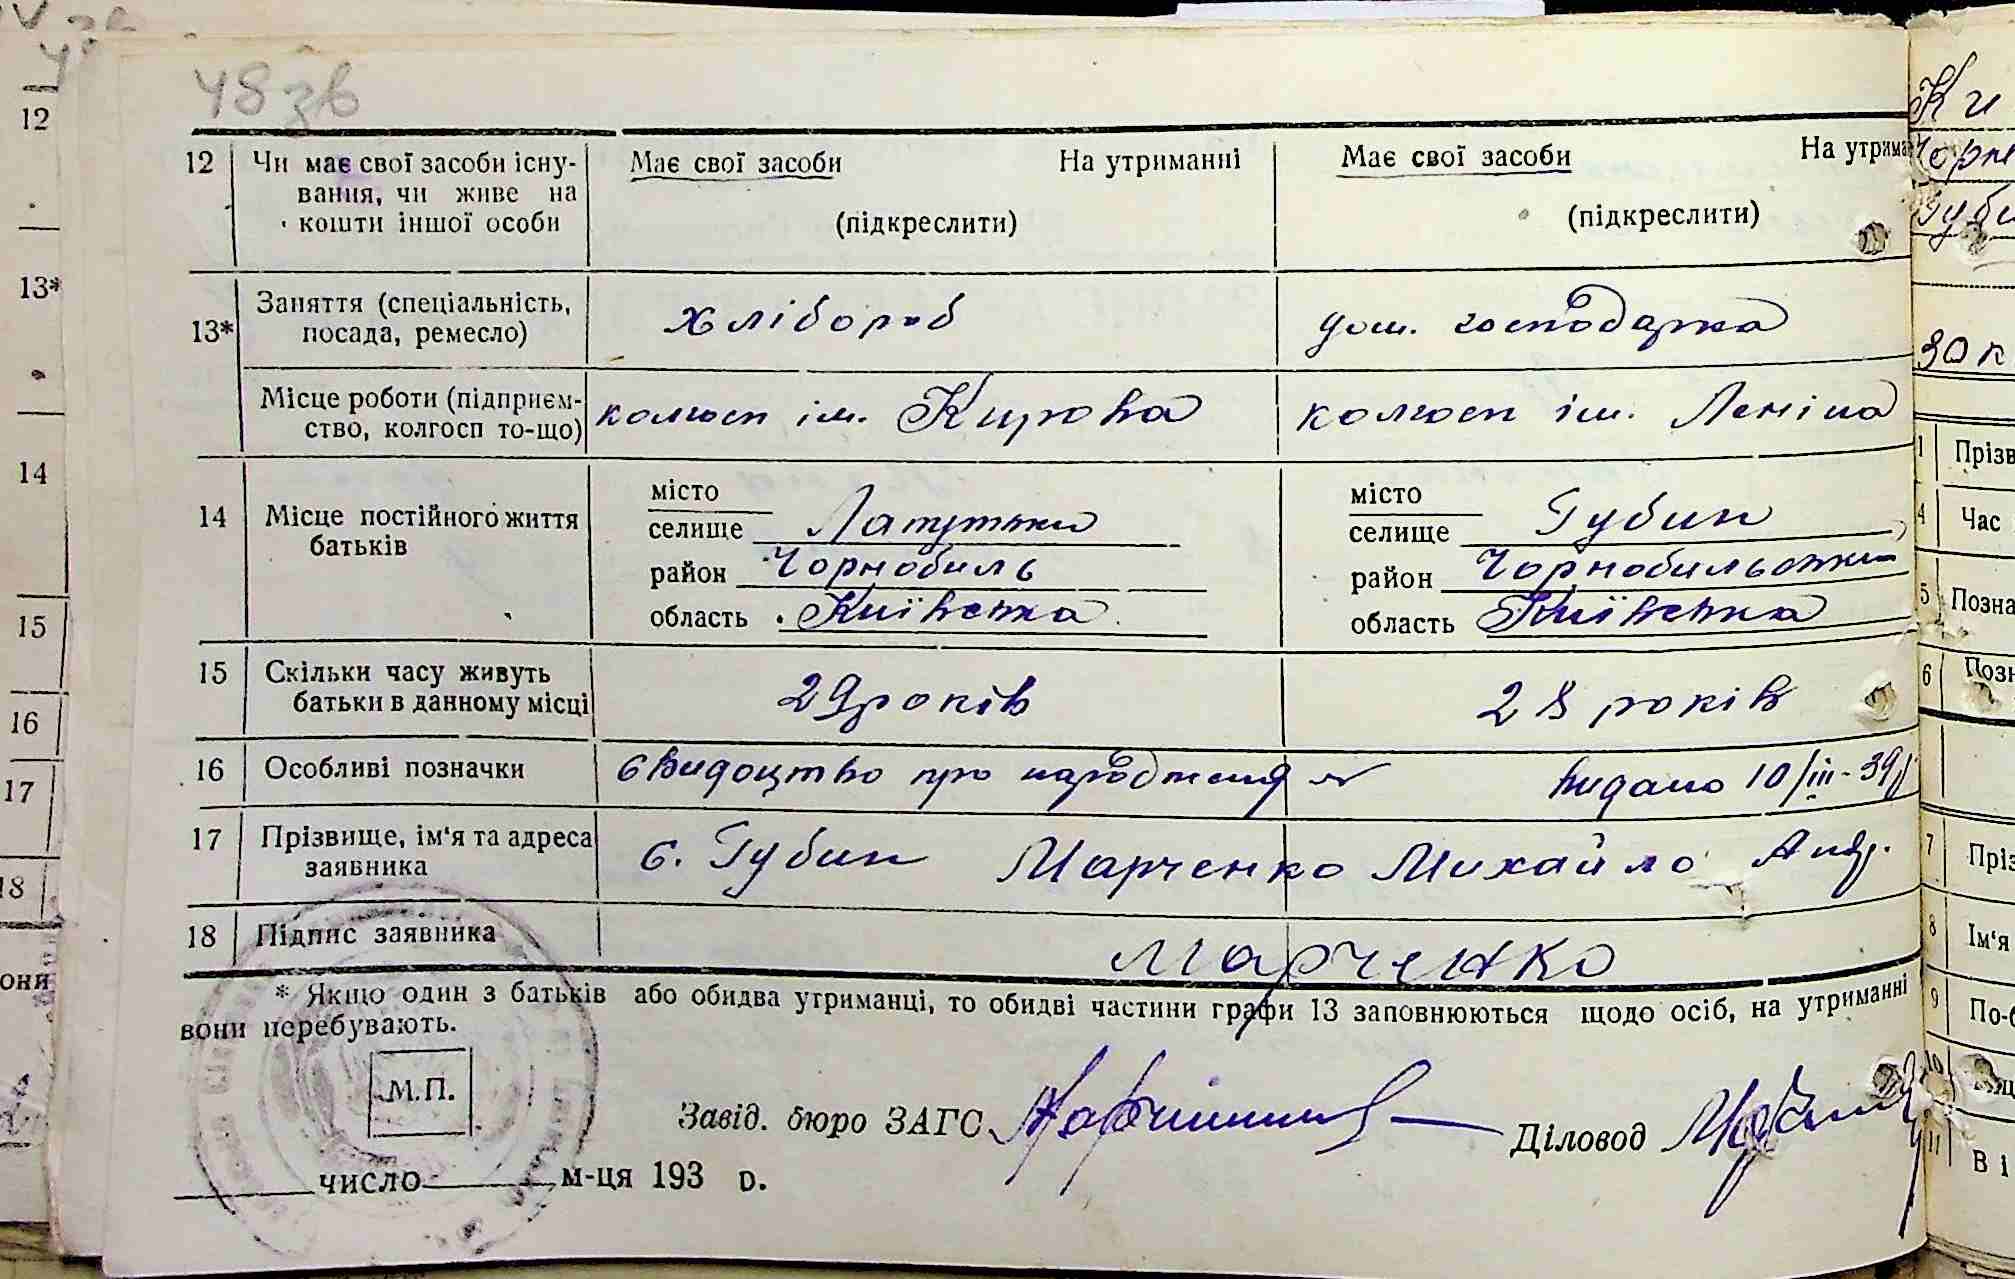 48 зв
12 Чи має свої засоби існу- Має свої засоби На утриманні Має свої засоби На утрима
вання, чи живе на
кошти іншої особи (підкреслити) (підкреслити)
13* Заняття (спеціальність, хлібороб дом. господарка
посада, ремесло)
Місце роботи (підприєм- колгосп ім. Кирова колгосп ім. Леніна
ство, колгосп то-що)
14 Місце постійного життя місто місто
батьків селище Лапутьки селище Губин
район Чорнобиль район Чорнобильський
область Київська область Київська
15 Скільки часу живуть 29 років 28 років
батьки в данному місці
16 Особливі позначки Свидоцтво про народження № видано 10/III-39р
17 Прізвище, ім'я та адреса с. Губин Марченко Михайло Андр.
заявника
18 Підпис заявника Марченко
* Якщо один з батьків або обидва утриманці, то обидві частини графи 13 заповнюються щодо осіб, на утриманні
вони перебувають.
М.П.
Завід. бюро ЗАГС Діловод
число м-ця 193 р.
12
13*
14
15
16
17
18
они
Ки
Чорн
Губи
30 к
1 Прізв
4 Час
5 Позна
6 Позн
7 Пріз
8 Ім'я
9 По-б
10
11 Ві